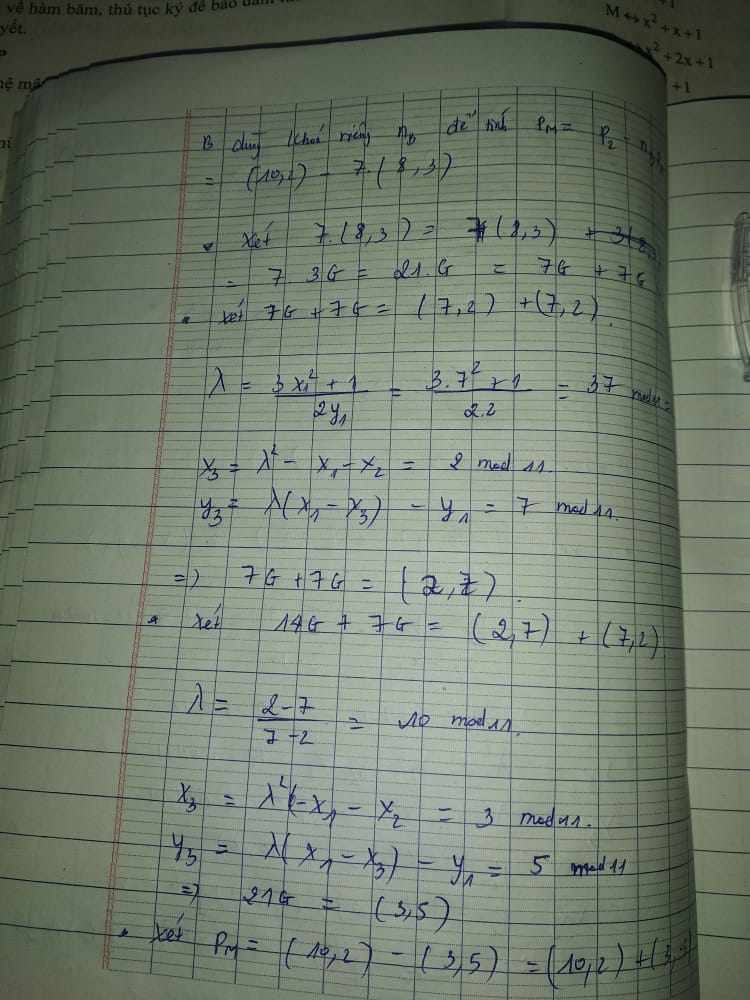 về hàm băm, thủ tục ký để bảo đảm
yết.
M ↔ x² + x + 1
x² + 2x + 1
+ 1
B dùng khoá riêng n_B để tính P_M = P_2 - n_B
= (10,2) - 7.(8,3)
• xét 7.(8,3) = 7(8,3)
= 7.3G = 21.G = 7G + 7G
• xét 7G + 7G = (7,2) + (7,2).
λ = (3x₁² + 1)/(2y₁) = (3.7² + 1)/(2.2) = 37 mod 11
x₃ = λ² - x₁ - x₂ = 2 mod 11.
y₃ = λ(x₁ - x₃) - y₁ = 7 mod 11.
=) 7G + 7G = (2,7).
• xét 14G + 7G = (2,7) + (7,2)
λ = (2-7)/(7-2) = 10 mod 11.
x₃ = λ² - x₁ - x₂ = 3 mod 11.
y₃ = λ(x₁ - x₃) - y₁ = 5 mod 11
=) 21G = (3,5)
• xét P_M = (10,2) - (3,5) = (10,2) + (3,